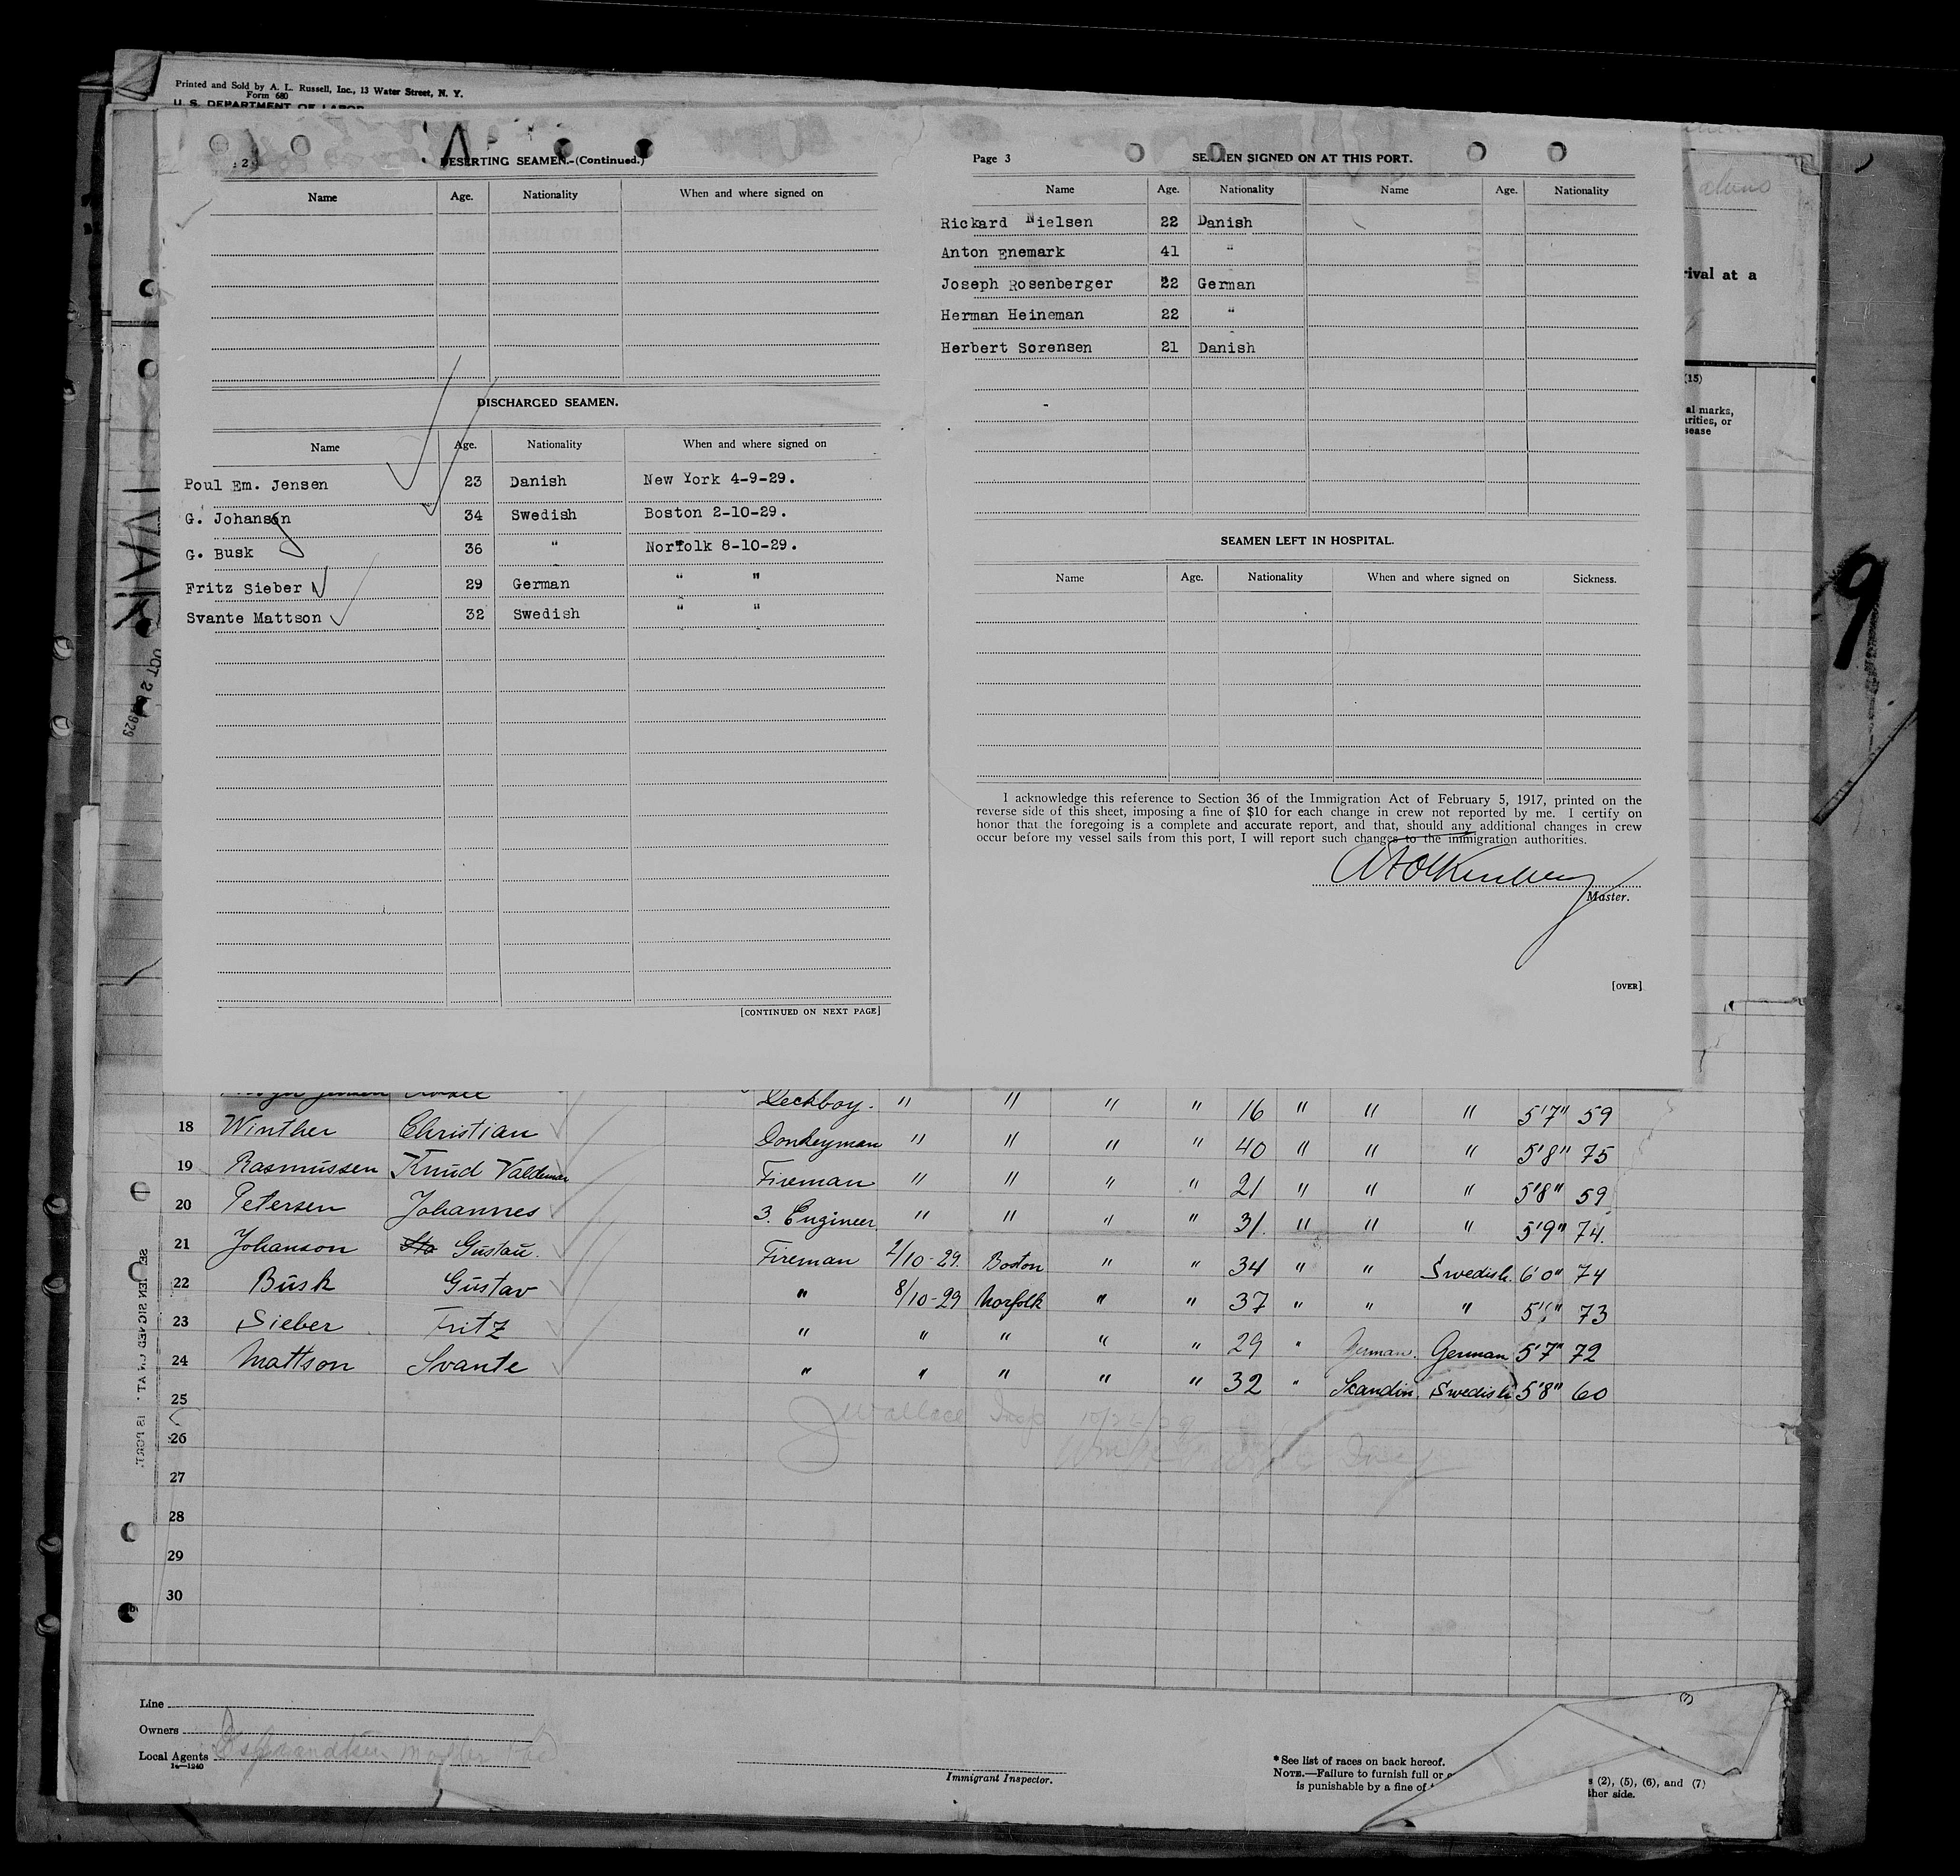 Printed and Sold by A. L. Russell, Inc., 13 Water Street, N. Y.
Form 680
U. S. DEPARTMENT OF LABOR
2
DESERTING SEAMEN.-(Continued.)
Name Age. Nationality When and where signed on
DISCHARGED SEAMEN.
Name Age. Nationality When and where signed on
Poul Em. Jensen 23 Danish New York 4-9-29.
G. Johanson 34 Swedish Boston 2-10-29.
G. Busk 36 " Norfolk 8-10-29.
Fritz Sieber 29 German " "
Svante Mattson 32 Swedish " "
[CONTINUED ON NEXT PAGE]
Page 3 SEAMEN SIGNED ON AT THIS PORT.
Name Age. Nationality Name Age. Nationality
Rickard Nielsen 22 Danish
Anton Enemark 41 "
Joseph Rosenberger 22 German
Herman Heineman 22 "
Herbert Sorensen 21 Danish
SEAMEN LEFT IN HOSPITAL.
Name Age. Nationality When and where signed on Sickness.
I acknowledge this reference to Section 36 of the Immigration Act of February 5, 1917, printed on the
reverse side of this sheet, imposing a fine of $10 for each change in crew not reported by me. I certify on
honor that the foregoing is a complete and accurate report, and that, should any additional changes in crew
occur before my vessel sails from this port, I will report such changes to the immigration authorities.
Master.
[OVER]
rival at a
(15)
al marks,
arities, or
sease
IVAR
OCT 2 1929
9
Deckboy. " " " " 16 " " " 5'7" 59
18 Winther Christian Donkeyman " " " " 40 " " " 5'8" 75
19 Rasmussen Knud Valdemar Fireman " " " " 21 " " " 5'8" 59
20 Petersen Johannes 3. Engineer " " " " 31. " " " 5'9" 74.
21 Johanson Gustav. Fireman 2/10-29. Boston " " 34 " " Swedish. 6'0" 74
22 Busk Gustav " 8/10-29 Norfolk " " 37 " " " 73
23 Sieber Fritz " " " " " 29 " German. German 5'7" 72
24 Mattson Svante " " " " " 32 " Scandin. Swedish 5'8" 60
25
Wallace Insp
26
27
28
29
30
SEAMEN SIGNED ON AT THIS PORT.
Line
Owners
Local Agents
14—1240
Immigrant Inspector.
(7)
* See list of races on back hereof.
NOTE.—Failure to furnish full or
is punishable by a fine of
s (2), (5), (6), and (7)
ther side.